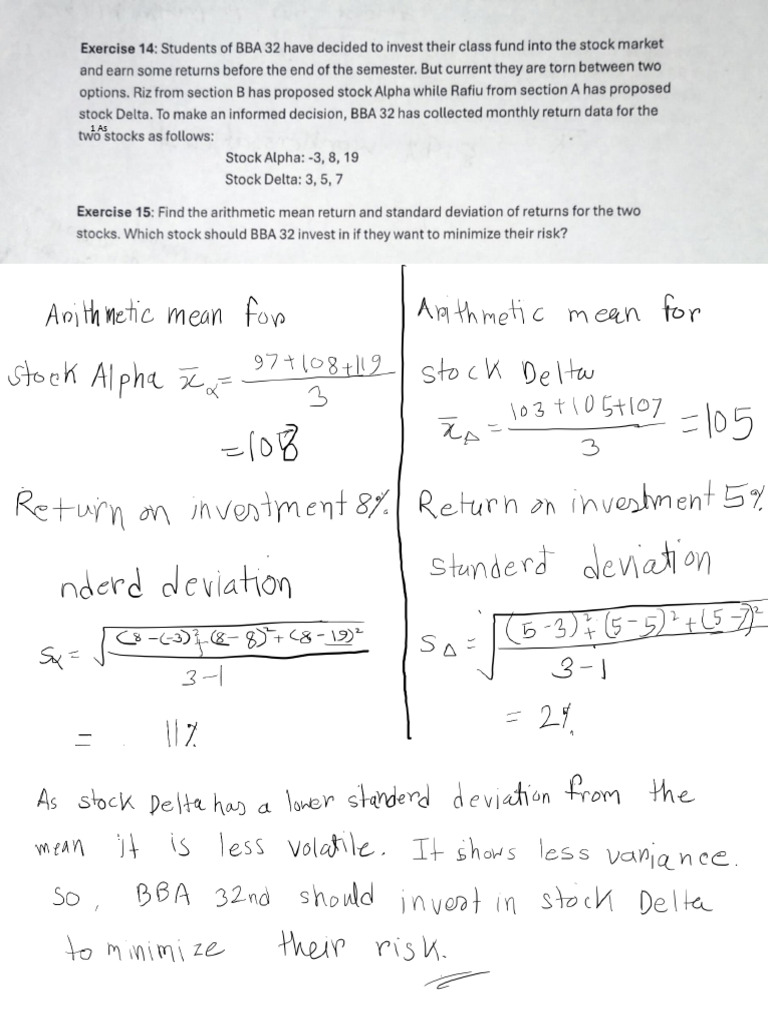 Exercise 14: Students of BBA 32 have decided to invest their class fund into the stock market
and earn some returns before the end of the semester. But current they are torn between two
options. Riz from section B has proposed stock Alpha while Rafiu from section A has proposed
stock Delta. To make an informed decision, BBA 32 has collected monthly return data for the
1 As
two stocks as follows:
Stock Alpha: -3, 8, 19
Stock Delta: 3, 5, 7
Exercise 15: Find the arithmetic mean return and standard deviation of returns for the two
stocks. Which stock should BBA 32 invest in if they want to minimize their risk?
Arithmetic mean for
stock Alpha x̄α = (97+108+119)/3
=108
Return on investment 8%
nderd deviation
Sα = √((8-(-3))²+(8-8)²+(8-19)²)/(3-1)
= 11%
Arithmetic mean for
stock Delta
x̄Δ = (103+105+107)/3 =105
Return on investment 5%
standerd deviation
SΔ = √((5-3)²+(5-5)²+(5-7)²)/(3-1)
= 2%
As stock Delta has a lower standerd deviation from the
mean it is less volatile. It shows less variance.
so, BBA 32nd should invest in stock Delta
to minimize their risk.